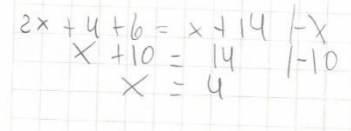 2x + 4 + 6 = x + 14 |-x
x + 10 = 14 |-10
x = 4